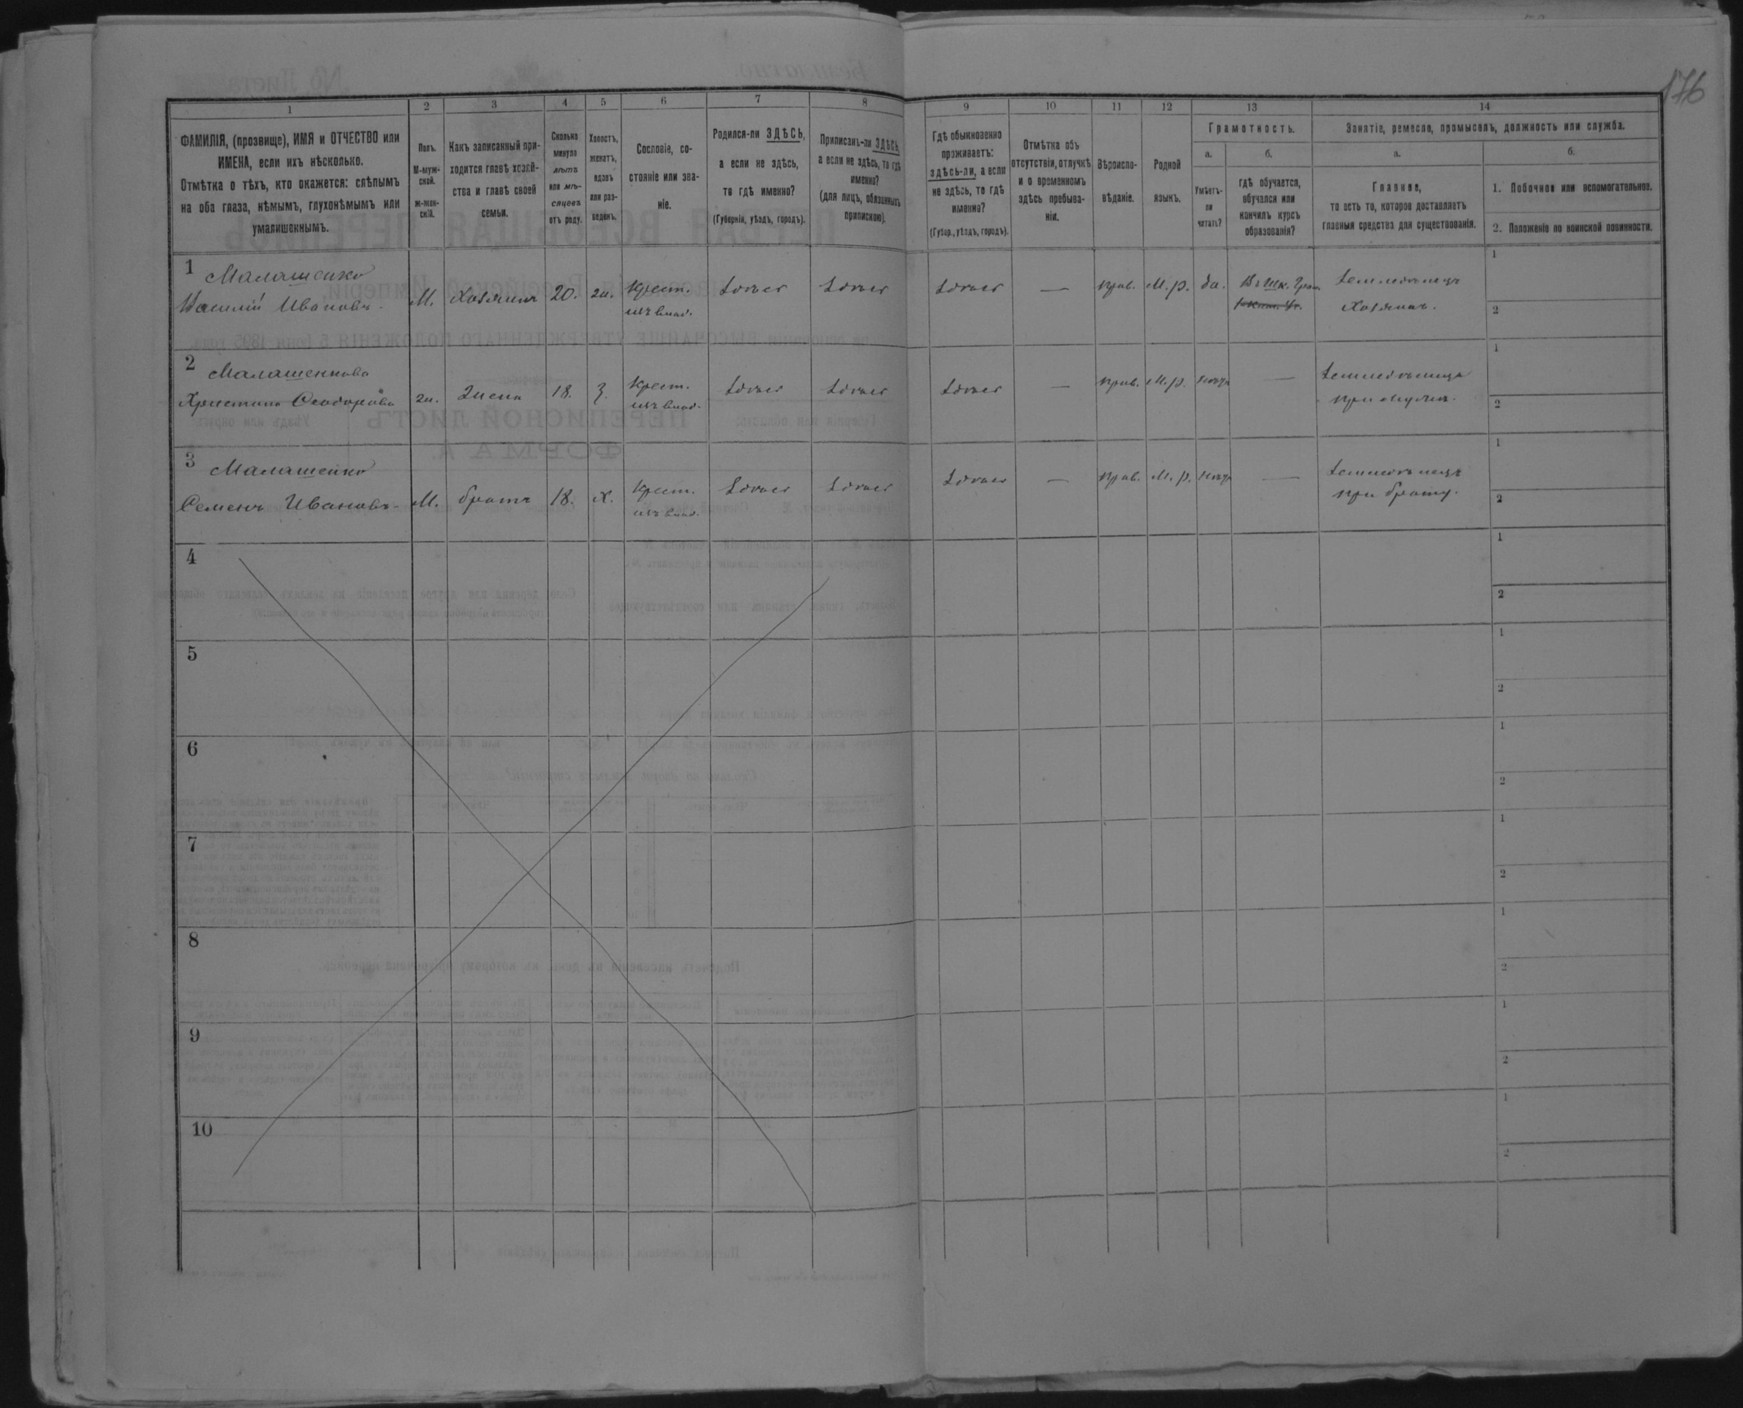 176
1
2
3
4
5
6
7
8
9
10
11
12
13
14
ФАМИЛІЯ, (прозвище), ИМЯ и ОТЧЕСТВО или
ИМЕНА, если ихъ нѣсколько.
Отмѣтка о тѣхъ, кто окажется: слѣпымъ
на оба глаза, нѣмымъ, глухонѣмымъ или
умалишеннымъ.
Полъ.
М-муж-
ской.
ж-жен-
скій.
Какъ записанный при-
ходится главѣ хозяй-
ства и главѣ своей
семьи.
Сколько
минуло
лѣтъ
или мѣ-
сяцевъ
отъ роду.
Холостъ,
женатъ,
вдовъ
или раз-
веденъ.
Сословіе, со-
стояніе или зва-
ніе.
Родился-ли ЗДѢСЬ,
а если не здѣсь,
то гдѣ именно?
(Губернія, уѣздъ, городъ).
Приписанъ-ли ЗДѢСЬ,
а если не здѣсь, то гдѣ
именно?
(для лицъ, обязанныхъ
припискою).
Гдѣ обыкновенно
проживаетъ:
здѣсь-ли, а если
не здѣсь, то гдѣ
именно?
(Губер., уѣздъ, городъ).
Отмѣтка объ
отсутствіи, отлучкѣ
и о временномъ
здѣсь пребыва-
ніи.
Вѣроиспо-
вѣданіе.
Родной
языкъ.
Грамотность.
а.
Умѣетъ-
ли
читать?
б.
гдѣ обучается,
обучался или
кончилъ курсъ
образованія?
Занятіе, ремесло, промыселъ, должность или служба.
а.
Главное,
то есть то, которое доставляетъ
главныя средства для существованія.
б.
1. Побочное или вспомогательное.
2. Положеніе по воинской повинности.
1
Малашенко
Василій Ивановъ
М.
Хозяинъ
20.
ж.
крест.
изъ влад.
Здѣсь
Здѣсь
Здѣсь
—
прав.
М. р.
да.
Въ шк. Грам.
Земледѣлецъ
Хозяинъ.
1
2
2
Малашенкова
Христина Ѳеодорова
ж.
Жена
18.
З.
крест.
изъ влад.
Здѣсь
Здѣсь
Здѣсь
—
прав.
М. р.
—
Земледѣлица
при мужѣ.
1
2
3
Малашенко
Семенъ Ивановъ
М.
братъ
18.
х.
крест.
изъ влад.
Здѣсь
Здѣсь
Здѣсь
—
прав.
М. р.
—
Земледѣлецъ
при братѣ.
1
2
4
1
2
5
1
2
6
1
2
7
1
2
8
1
2
9
1
2
10
1
2